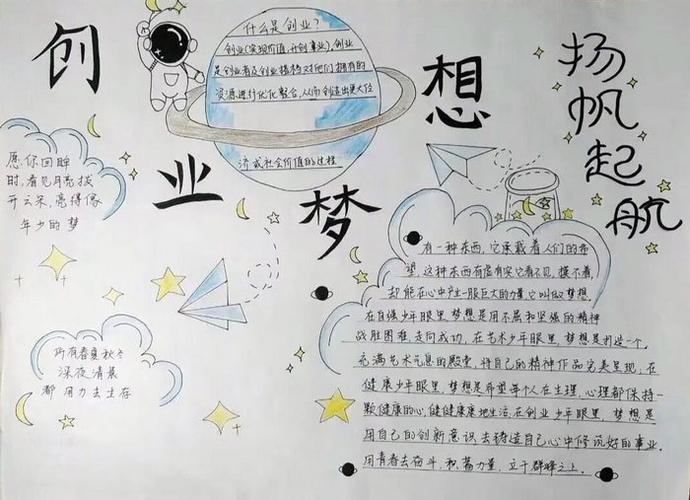 创业梦想
扬帆起航
什么是创业?
创业(实现价值,开创事业),创业
是创业者及创业搭档对他们拥有的
资源进行优化整合,从而创造出更大经
济或社会价值的过程
愿你回眸
时,看见月亮拨
开云朵,亮得像
年少的梦
所有春夏秋冬
深夜清晨
都用力去生存
有一种东西,它承载着人们的希
望,这种东西有虚有实它看不见,摸不着,
却能在心中产生一股巨大的力量,它叫做梦想
在自强少年眼里梦想是用不屈和坚强的精神
战胜困难,走向成功,在艺术少年眼里,梦想是打造一个
充满艺术气息的殿堂,将自己的精神作品完美呈现,在
健康少年眼里,梦想是希望每个人在生理,心理都保持一
颗健康的心,健健康康地生活,在创业少年眼里,梦想是
用自己的创新意识去铸造自己心中修筑好的事业.
用青春去奋斗,积蓄力量,立于群峰之上.